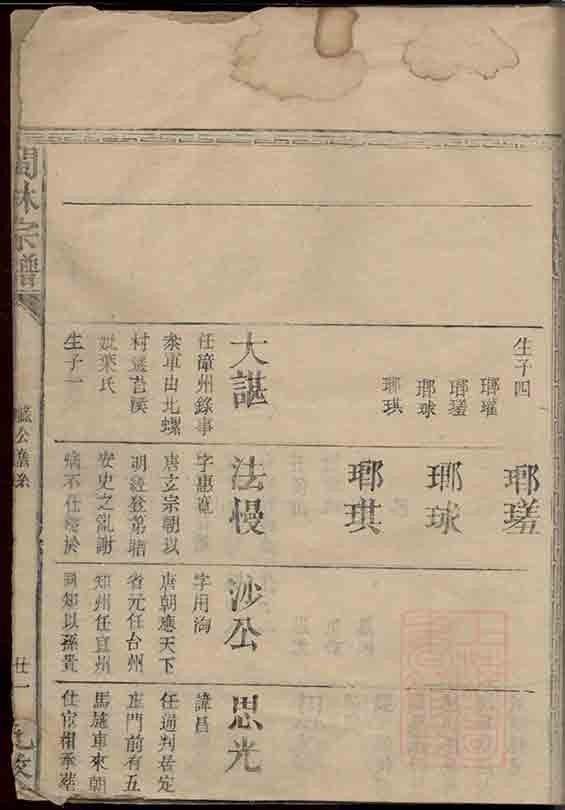 生子四
瑯瓘
瑯瑳
瑯球
瑯琪
大諶
任漳州錄事
參軍由北螺
村遷苔溪
妣葉氏
生子一
瑯瑳
瑯球
瑯琪
法慢
字惠寬
唐玄宗朝以
明經登第
安史之亂謝
病不仕
沙公
字用洵
唐朝應天下
省元任台州
知州任宜州
同知以孫貴
思光
諱昌
任通判居定
庄門前有五
馬旌車來朝
仕宦相承
林宗譜
廿一